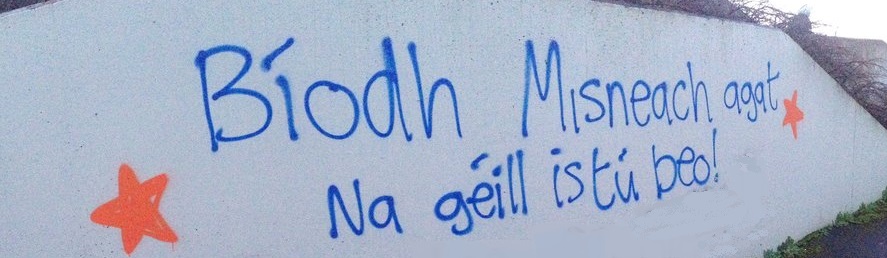 Bíodh Misneach agat
Na géill is tú beo!